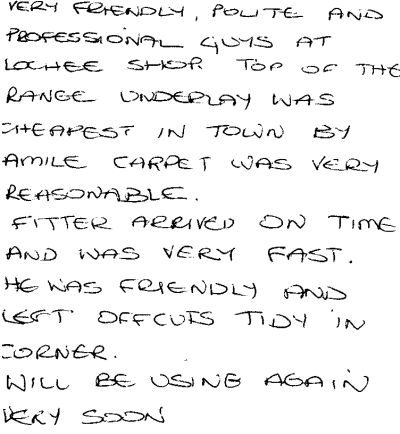 VERY FRIENDLY, POLITE AND
PROFESSIONAL GUYS AT
LOCHEE SHOP. TOP OF THE
RANGE UNDERLAY WAS
CHEAPEST IN TOWN BY
AMILE CARPET WAS VERY
REASONABLE.
FITTER ARRIVED ON TIME
AND WAS VERY FAST.
HE WAS FRIENDLY AND
LEFT OFFCUTS TIDY IN
CORNER.
WILL BE USING AGAIN
VERY SOON